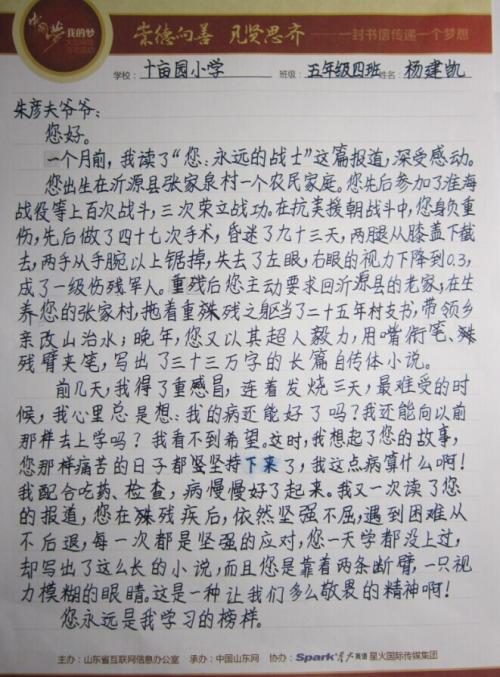 中国梦 我的梦
崇德向善 凡贤思齐 ——一封书信传递一个梦想
学校: 十亩园小学 班级: 五年级四班 姓名: 杨建凯
朱彦夫爷爷:
您好。
一个月前,我读了“您:永远的战士”这篇报道,深受感动。
您出生在沂源县张家泉村一个农民家庭。您先后参加了淮海
战役等上百次战斗,三次荣立战功。在抗美援朝战斗中,您身负重
伤,先后做了四十七次手术,昏迷了九十三天,两腿从膝盖下截
去,两手从手腕以上锯掉,失去了左眼,右眼的视力下降到0.3,
成了一级伤残军人。重残后您主动要求回沂源县的老家,在生
养您的张家村,拖着重残之躯当了二十五年村支书,带领乡
亲改山治水;晚年,您又以其超人毅力,用嘴衔笔、
残臂夹笔,写出了三十三万字的长篇自传体小说。
前几天,我得了重感冒,连着发烧三天,最难受的时
候,我心里总是想:我的病还能好了吗?我还能向以前
那样去上学吗?我看不到希望。这时,我想起了您的故事,
您那样痛苦的日子都坚坚持下来了,我这点病算什么啊!
我配合吃药、检查,病慢慢好了起来。我又一次读了您
的报道,您在残疾后,依然坚强不屈,遇到困难从
不后退,每一次都是坚强的应对,您一天学都没上过,
却写出了这么长的小说,而且您是靠着两条断臂,一只视
力模糊的眼睛。这是一种让我们多么敬畏的精神啊!
您永远是我学习的榜样。
主办:山东省互联网信息办公室 承办:中国山东网 协办:Spark星火英语 星火国际传媒集团